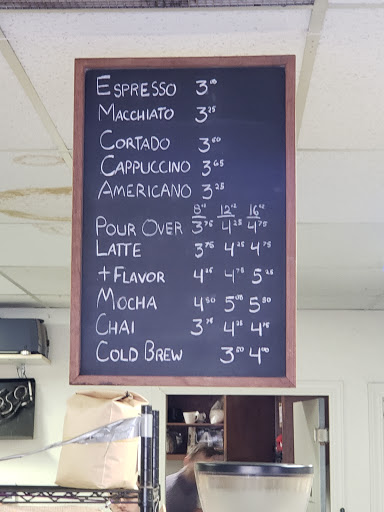 ESPRESSO 3⁰⁰
MACCHIATO 3²⁵
CORTADO 3⁵⁰
CAPPUCCINO 3⁶⁵
AMERICANO 3²⁵
8oz 12oz 16oz
POUR OVER 3⁷⁵ 4²⁵ 4⁷⁵
LATTE 3⁷⁵ 4²⁵ 4⁷⁵
+ FLAVOR 4²⁵ 4⁷⁵ 5²⁵
MOCHA 4⁵⁰ 5⁰⁰ 5⁵⁰
CHAI 3⁷⁵ 4²⁵ 4⁷⁵
COLD BREW 3⁵⁰ 4⁰⁰